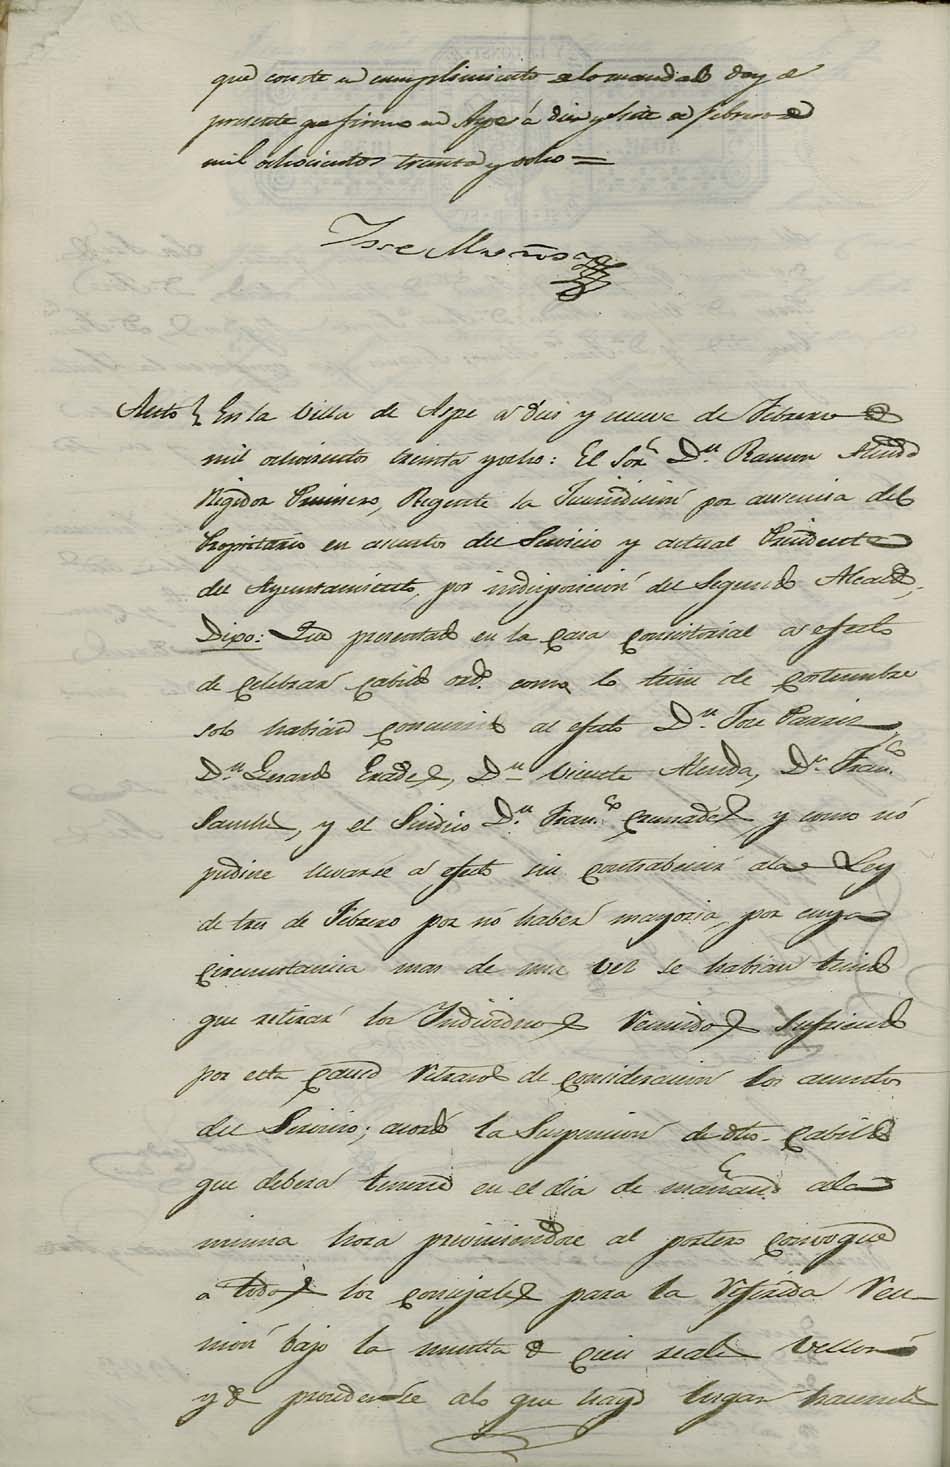 que conste en cumplimiento a lo mandado doy el
presente que firmo en Aspe á diez y siete de febrero de
mil ochocientos treinta y ocho =
Jose
Auto En la Villa de Aspe á diez y nueve de Febrero de
mil ochocientos treinta y ocho: El Sor. Dn. Ramon Almoda
Regidor Primero, Regente la Jurisdicion por ausencia del
Propietario en asuntos del Servicio y actual Presidente
del Ayuntamiento, por indisposicion del Segundo Alcalde,
Dixo: Que presentado en la Casa Consistorial al efecto
de celebrar Cabildo ordo. como lo tiene de costumbre
solo habian concurrido al efecto Dn. Jose
Dn. Gerardo, Dn. Vicente Almoda, Dn. Franco.
Sanchez, y el Sindico Dn. Franco. y como nó
pudiese llevarse á efecto sin contrabenir a la Ley
de tres de Febrero por nó haber mayoria, por cuya
circunstancia mas de una vez se habian tenido
que retirar los Individuos reunidos sufriendo
por esta causa retraso de consideracion los asuntos
del Servicio; acordó la Suspension de dho. Cabildo
que deberá tenerse en el dia de mañana a la
misma hora previniendose al portero convoque
a todos los concejales para la referida reu-
nion bajo la multa de cien reales vellon
y de procederse a lo que haya lugar